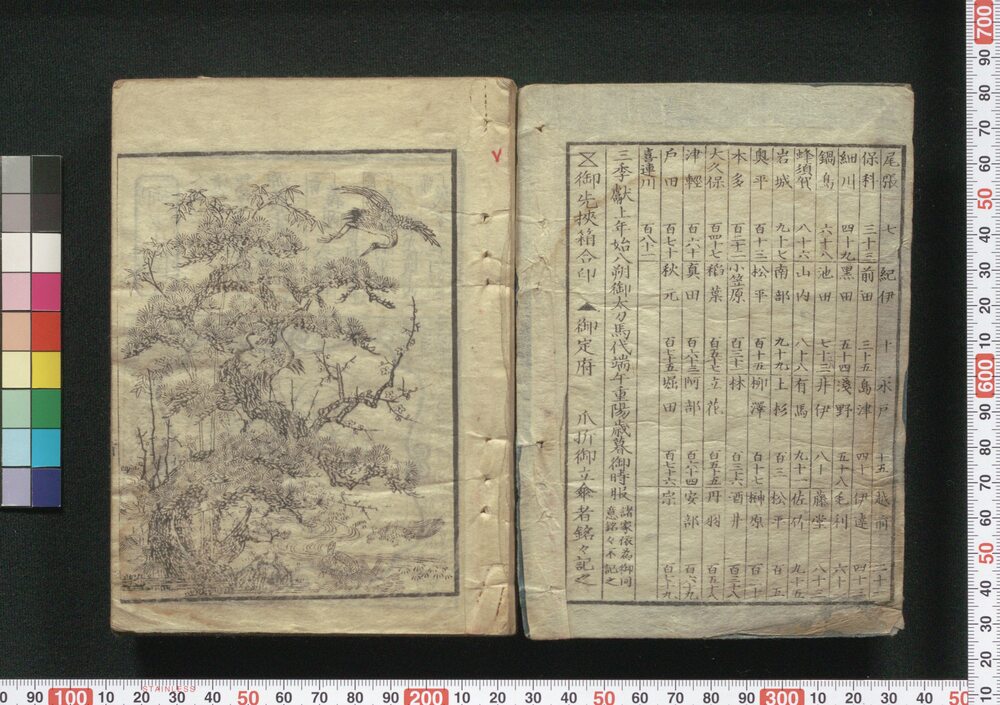 尾張 七 紀伊 十 水戸 十五 越前 二十二
保科 三十三 前田 三十五 島津 四十 伊達 四十三
細川 四十九 黒田 五十四 淺野 五十八 毛利 六十
鍋島 六十八 池田 七十三 井伊 八十 藤堂 八十三
蜂須賀 八十六 山内 八十八 有馬 九十一 佐竹 九十五
岩城 九十七 南部 九十九 上杉 百三 松平 百五
奥平 百十三 松平 百十五 柳澤 百十七 榊原 百二十
本多 百二十二 小笠原 百三十一 林 百三十六 酒井 百三十八
大久保 百四十七 稻葉 百五十七 立花 百五十五 丹羽 百五十八
津軽 百六十 真田 百六十三 阿部 百六十四 安部 百六十九
戸田 百七十 秋元 百七十五 堀田 百七十六 宗 百七十九
喜連川 百八十二
三季獻上年始八朔御太刀馬代端午重陽歳暮御時服 諸家依為御同
意銘々不記之
御先挾箱合印 ▲御定府 爪折御立傘者銘々記之
STAINLESS
0 90 100 10 20 30 40 50 60 70 80 90 200 10 20 30 40 50 60 70 80 90 300 10 20 30 40 50
700 90 80 70 60 50 40 30 20 10 600 90 80 70 60 50 40 30 20 10